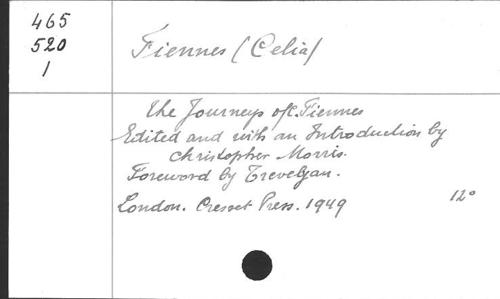 465
520
1
Fiennes (Celia)
The Journeys of C. Fiennes
Edited and with an Introduction by
Christopher Morris.
Foreword by Trevelyan.
London. Cresset Press. 1949 12°